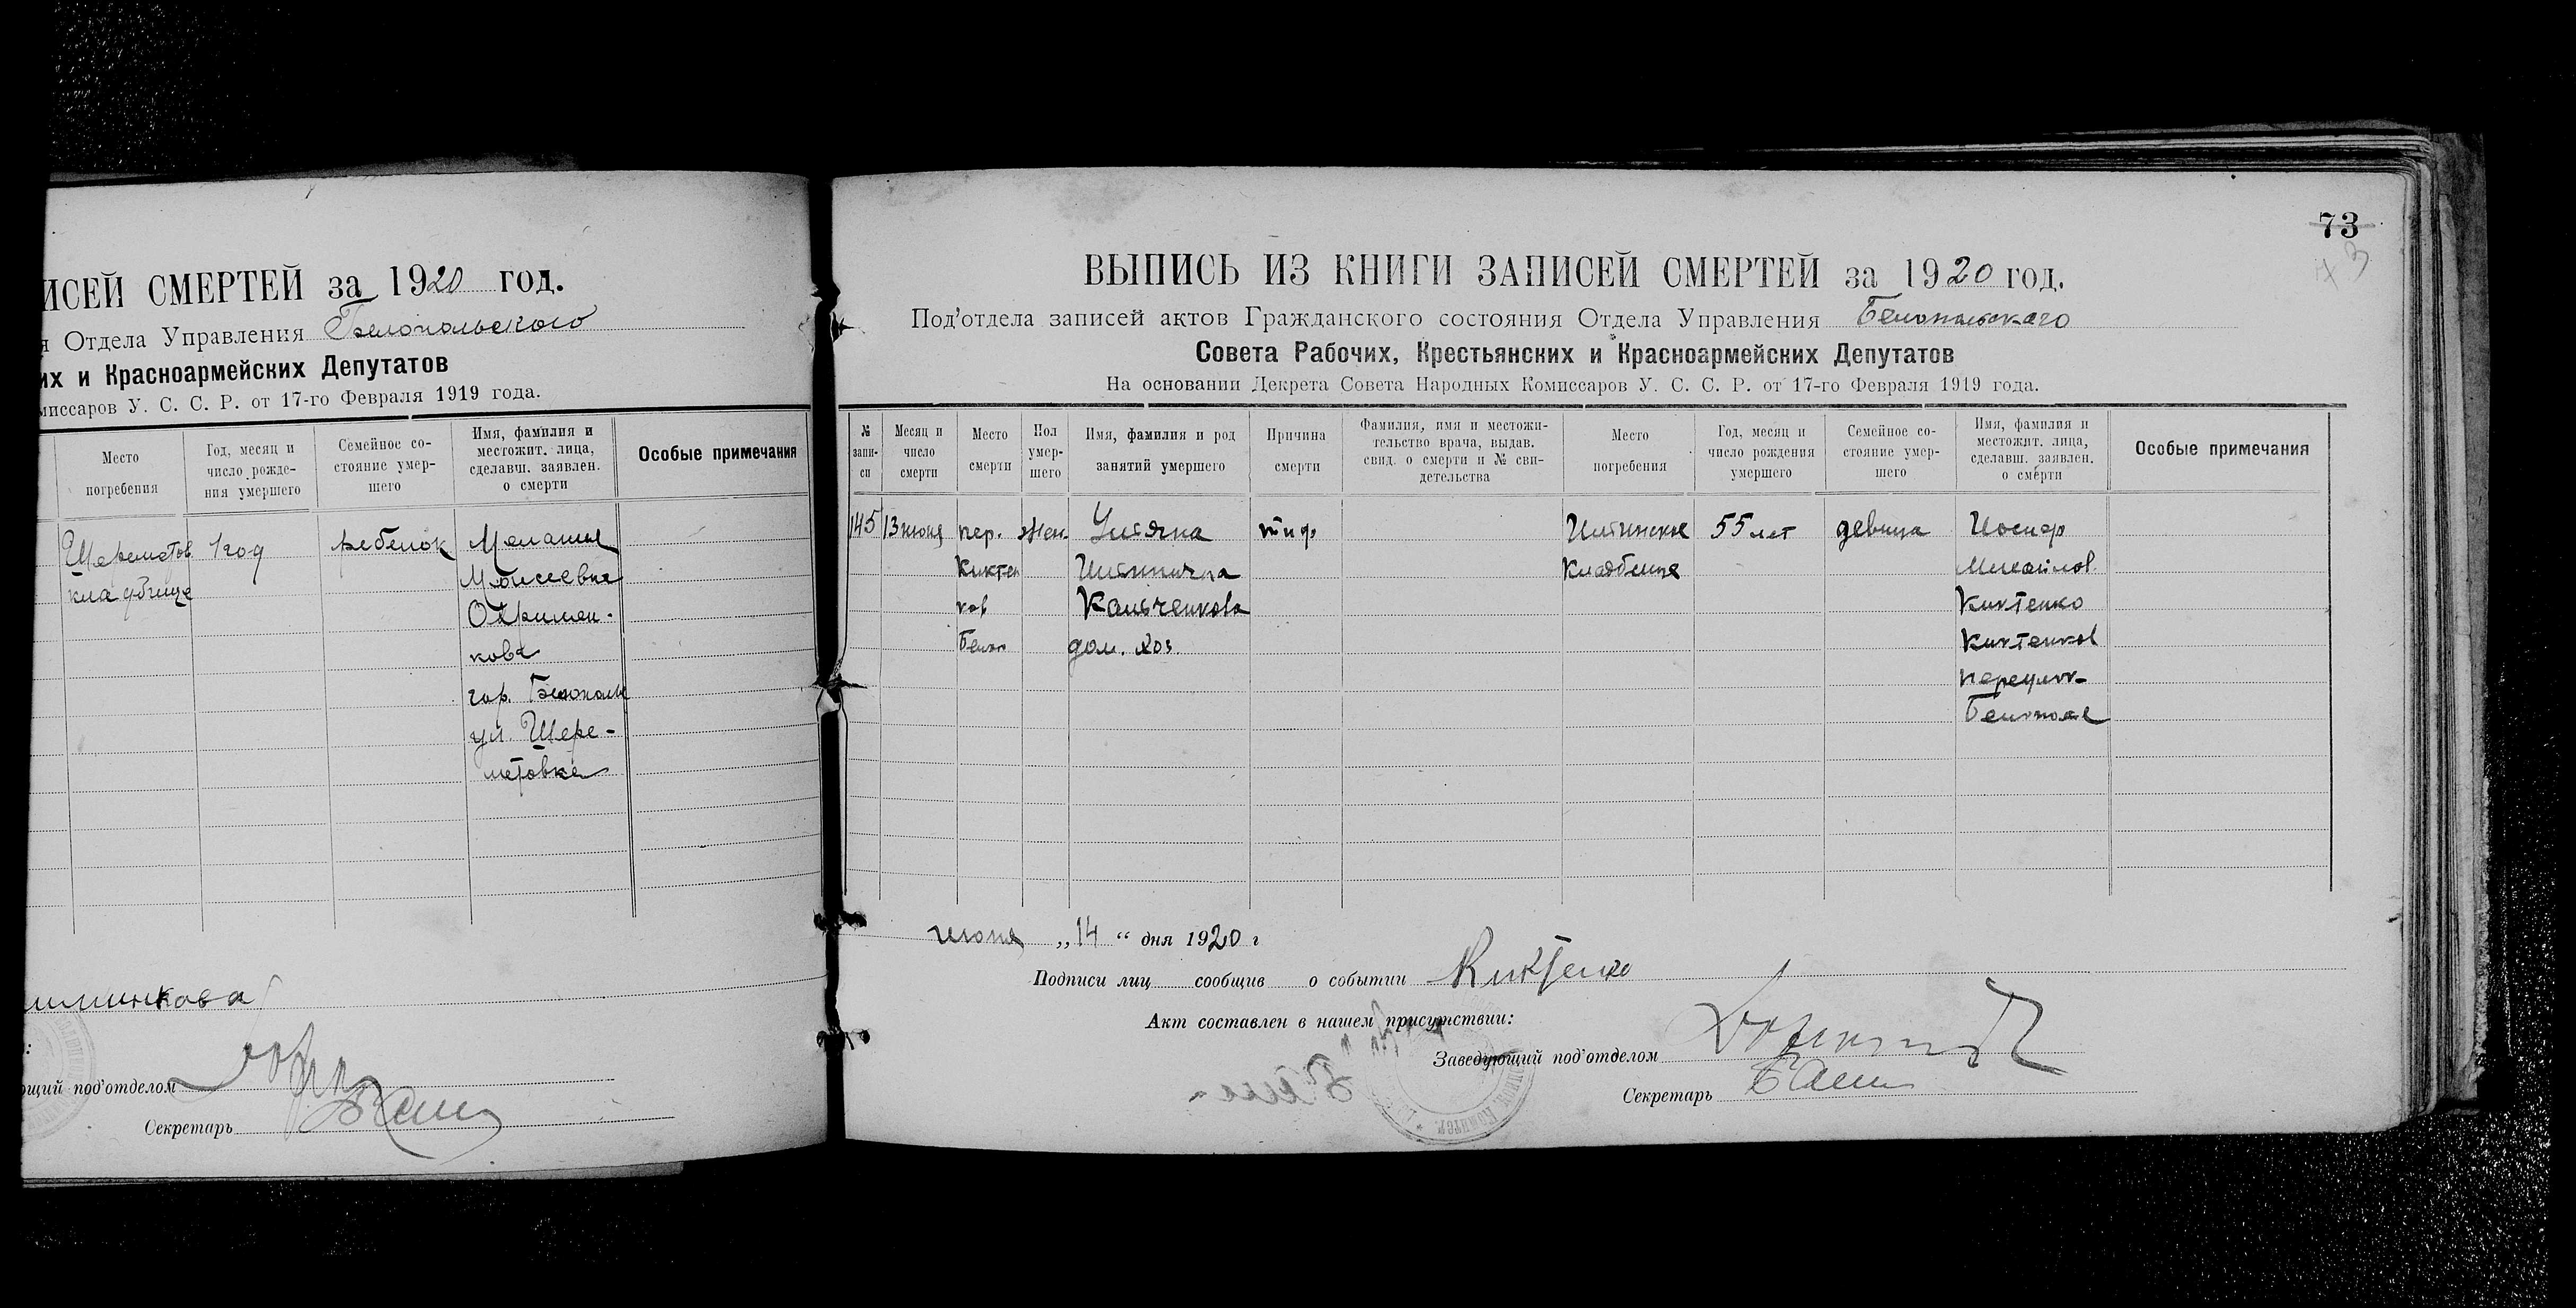 ИСЕЙ СМЕРТЕЙ за 1920 год.
я Отдела Управления Белопольского
их и Красноармейских Депутатов
миссаров У. С. С. Р. от 17-го Февраля 1919 года.
Место погребения
Год, месяц и число рождения умершего
Семейное состояние умершего
Имя, фамилия и местожит. лица, сделавш. заявлен. о смерти
Особые примечания
Шереметов 1 год ребенок Мелания
кладбище Моисеевна
Охримен-
кова
гор. Белополье
ул. Шере-
метовка
ощий под'отделом
Секретарь
73
ВЫПИСЬ ИЗ КНИГИ ЗАПИСЕЙ СМЕРТЕЙ за 1920 год.
Под'отдела записей актов Гражданского состояния Отдела Управления Белопольского
Совета Рабочих, Крестьянских и Красноармейских Депутатов
На основании Декрета Совета Народных Комиссаров У. С. С. Р. от 17-го Февраля 1919 года.
№ записи
Месяц и число смерти
Место смерти
Пол умершего
Имя, фамилия и род занятий умершего
Причина смерти
Фамилия, имя и местожительство врача, выдав. свид. о смерти и № свидетельства
Место погребения
Год, месяц и число рождения умершего
Семейное состояние умершего
Имя, фамилия и местожит. лица, сделавш. заявлен. о смерти
Особые примечания
145 13 июня пер. жен. Ульяна тиф Ильинское 55 лет девица Иосиф
Киктен Ильинична кладбище Михайлов
ков Кальченкова Киктенко
Белоп дом. хоз. Киктенков
переулок
Белополье
июня „14“ дня 1920 г
Подписи лиц сообщив о событии Киктенко
Акт составлен в нашем присутствии:
Заведующий под'отделом
Секретарь